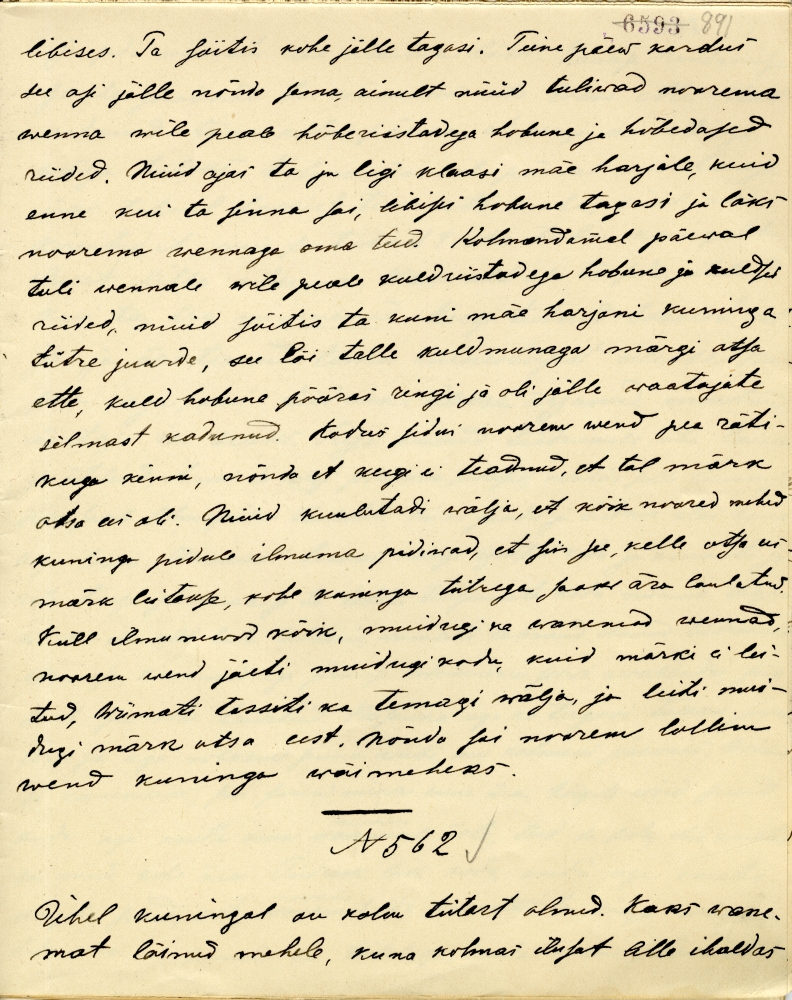 6593 891
libises. Ta sõitis kohe jälle tagasi. Teine päew kordus
see asi jälle nõnda sama, ainult nüüd tuliwad noorema
wenna wile peale hõberiistadega hobune ja hõbedased
riided. Nüüd ajas ta ju ligi klaasi mäe harjale, kuid
enne kui ta sinna sai, libises hobune tagasi ja läks
noorema wennaga oma teed. Kolmandamal päewal
tuli wennale wile peale kuldriistadega hobune ja kuldsed
riided, nüüd sõitis ta kuni mäe harjani kuninga
tütre juurde, see lõi talle kuldmunaga märgi otsa
ette, kuld hobune pööras ringi ja oli jälle waatajate
silmast kadunud. Kodus sidus noorem wend pea räti-
kuga kinni, nõnda et keegi ei teadnud, et tal märk
otsa ees oli. Nüüd kuulutadi wälja, et kõik noored mehed
kuninga pidule ilmuma pidiwad, et siis see, kelle otsa ees
märk leitakse, kohe kuninga tütrega saaks ära laulatud.
Küll ilmunewad kõik, muidugi ka wanemad wennad,
noorem wend jäeti muidugi kodu, kuid märki ei lei-
tud, wiimati tassiti ka temagi wälja, ja leiti mui-
dugi märk otsa eest. Nõnda sai noorem lollim
wend kuninga wäimeheks.
N 562
Ühel kuningal on kolm tütart olnud. Kaks wane-
mat läinud mehele, kuna kolmas ilusat lille ihaldas